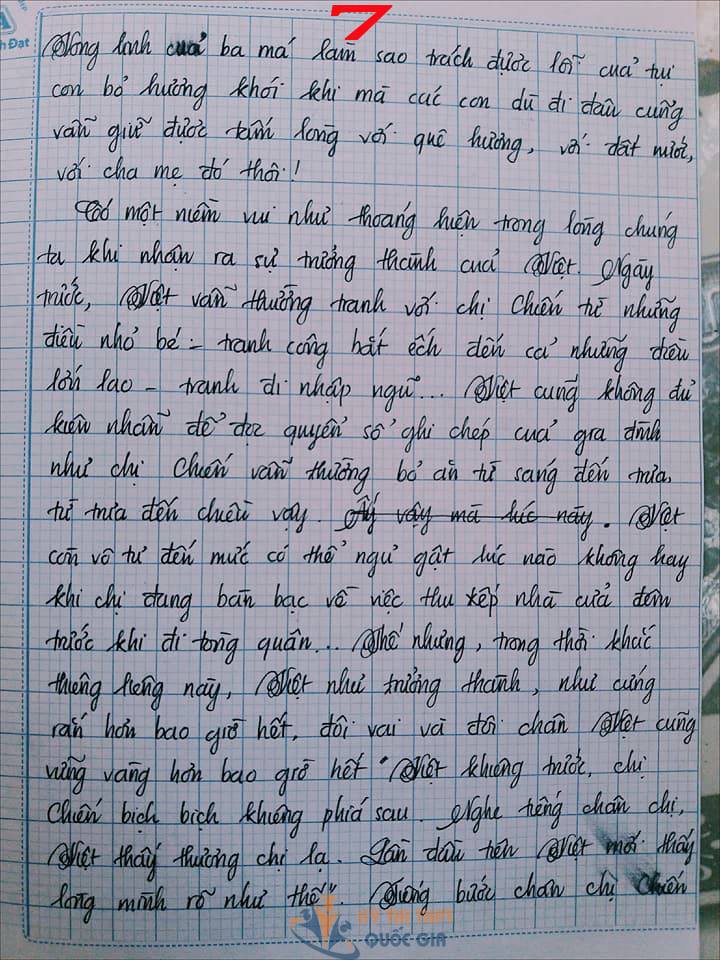 7
h Đạt
Vong linh của ba má làm sao trách được lỗi của tụi
con bỏ hương khói khi mà các con dù đi đâu cũng
vẫn giữ được tấm lòng với quê hương, với đất nước,
với cha mẹ đó thôi!
Có một niềm vui như thoáng hiện trong lòng chúng
ta khi nhận ra sự trưởng thành của Việt. Ngày
trước, Việt vẫn thường tranh với chị Chiến từ những
điều nhỏ bé - tranh công bắt ếch đến cả những điều
lớn lao - tranh đi nhập ngũ... Việt cũng không đủ
kiên nhẫn để đọc quyển sổ ghi chép của gia đình
như chị Chiến vẫn thường bỏ ăn từ sáng đến trưa,
từ trưa đến chiều vậy. Ấy vậy mà lúc này. Việt
còn vô tư đến mức có thể ngủ gật lúc nào không hay
khi chị đang bàn bạc về việc thu xếp nhà cửa đêm
trước khi đi tòng quân... Thế nhưng, trong thời khắc
thiêng liêng này, Việt như trưởng thành, như cứng
rắn hơn bao giờ hết, đôi vai và đôi chân Việt cũng
vững vàng hơn bao giờ hết "Việt khiêng trước, chị
Chiến bịch bịch khiêng phía sau. Nghe tiếng chân chị,
Việt thấy thương chị lạ. Lần đầu tiên Việt mới thấy
lòng mình rõ như thế". Trong bước chân chị Chiến
KỲ THI THPT
QUỐC GIA